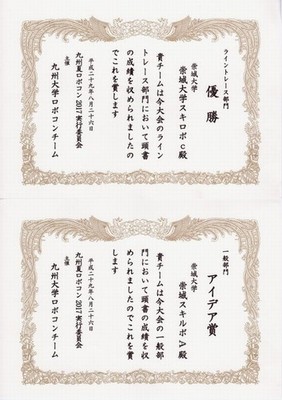 ライントレース部門
優勝
崇城大学
崇城大学スキロボc殿
貴チームは今大会のライン
トレース部門において頭書
の成績を収められましたの
でこれを賞します
平成二十九年八月二十六日
九州夏ロボコン2017実行委員会
主催
九州大学ロボコンチーム
一般部門
アイデア賞
崇城大学
崇城大スキルボA殿
貴チームは今大会の一般部
門において頭書の成績を収
められましたのでこれを賞
します
平成二十九年八月二十六日
九州夏ロボコン2017実行委員会
主催
九州大学ロボコンチーム